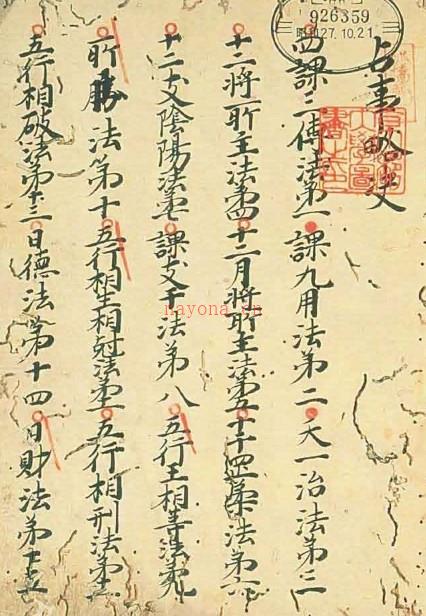 926359
昭和27.10.21
占事略决
四課三傳法第一 課九用法第二 天一治法第三
十二將所主法第四 十二月將所主法第五 十干罡柔法第六
十二支陰陽法第七 課支干法第八 五行王相等法第九
所勝法第十 五行相生相剋法第十一 五行相刑法第十二
五行相破法第十三 日德法第十四 日財法第十五
nayona.cn